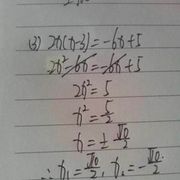 (3) 2x(x-3)=-6x+5
2x²-6x=-6x+5
2x²=5
x²=5/2
x=±√10/2
∴x₁=√10/2, x₂=-√10/2